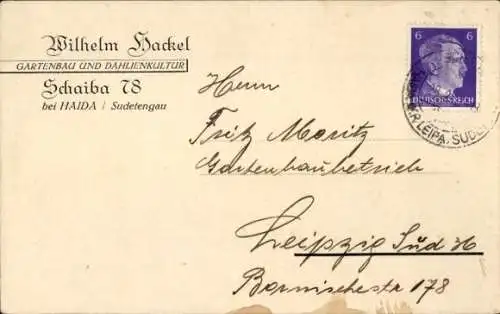 Wilhelm Hackel
GARTENBAU UND DAHLIENKULTUR
Schaiba 78
bei HAIDA / Sudetengau
6 6
DEUTSCHES REICH
LEIPA, SUDE
Herrn
Fritz Moritz
Gartenbaubetrieb
Leipzig Süd
Bornaischestr 178